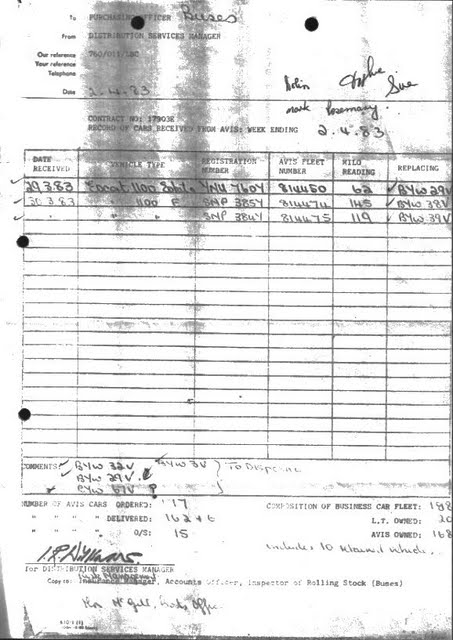 To PURCHASING OFFICER Buses
From DISTRIBUTION SERVICES MANAGER
Our reference 760/011/
Your reference
Telephone
Date 2.4.83
Robin Sue
Mark Rosemary.
CONTRACT NO: 17903E
RECORD OF CARS RECEIVED FROM AVIS: WEEK ENDING 2.4.83
DATE RECEIVED VEHICLE TYPE REGISTRATION NUMBER AVIS FLEET NUMBER KILO READING REPLACING
29.3.83 Escort 1100 YNU 760Y 814450 62 BYW 29V
30.3.83 " 1100 E SMP 385Y 814474 145 BYW 38V
" " " SMP 384Y 814475 119 BYW 39V
COMMENTS: BYW 32V BYW 3V } To Dispose
BYW 29V
BYW 67V ?
NUMBER OF AVIS CARS ORDERED: 17 COMPOSITION OF BUSINESS CAR FLEET: 188
" " " " DELIVERED: 162 + 6 L.T. OWNED: 20
" " " " O/S: 15 AVIS OWNED: 168
includes 10
for DISTRIBUTION SERVICES MANAGER
Copy to: Insurance Manager, Accounts Officer, Inspector of Rolling Stock (Buses)